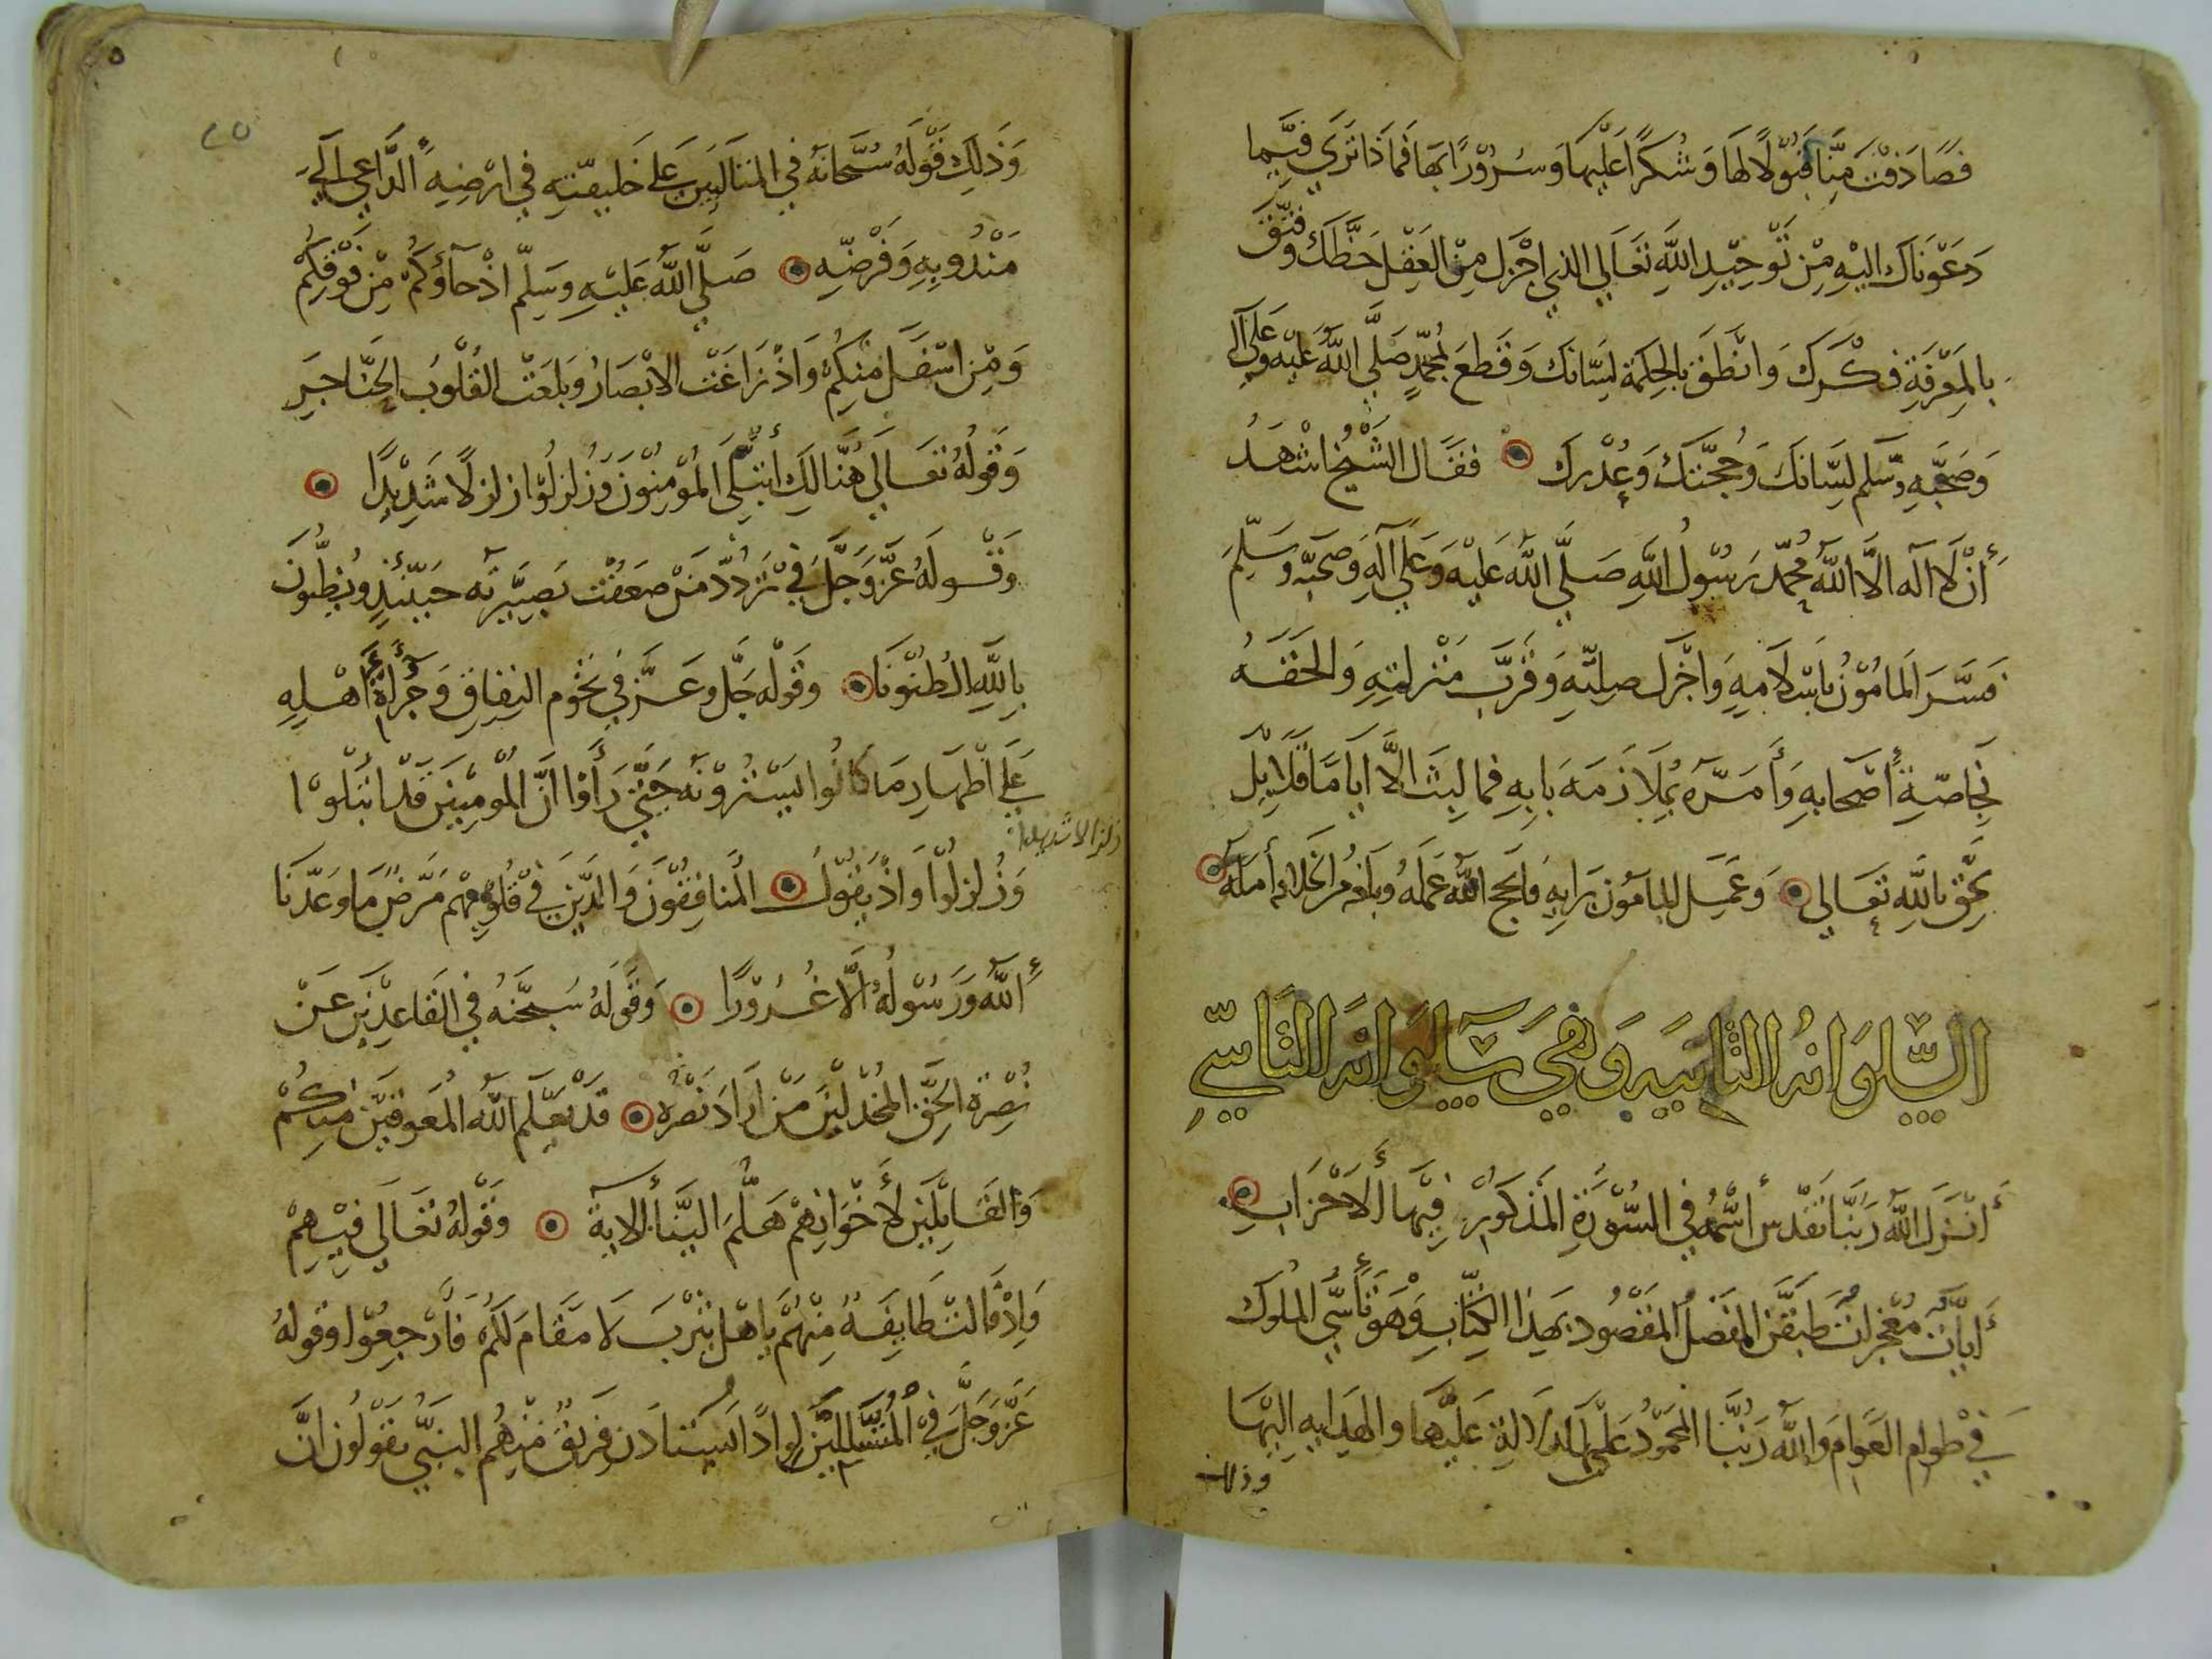 فصادفت منا قبولا لها وشكرا عليها وسرورا بها فماذا تري فيما
دعوناك اليه من توحيد الله تعالي الذي اجزل من العقل حظك وفتق
بالمعرفة فكرك وانطق بالحكمة لسانك وقطع بمحمد صلي الله عليه وعلي آله
وصحبه وسلم لسانك وحجتك وعذرك ففال الشيخ اشهد
أن لا اله الا الله محمد رسول الله صلي الله عليه وعلي آله وصحبه وسلم
فسر المامون باسلامه واجزل صلته وقرب منزلته والحقه
بخاصة أصحابه وأمره بملازمه بابه فما لبث الا اياما قلايل
لحق بالله تعالي وعمل المامون برايه فانجح الله عمله وبلغه من الخلافه أمله
السلوانه الثانيه وهي سلوانه التاسي
أنزل الله ربنا تقدس أسمه في السورة المذكور فيها ألاحزاب
أيات معجزات طبقن المفصل المقصود بهذا الكتاب وهو تأسي الملوك
في طوام العوام والله ربنا المحمود علي الدلالة عليها والهدايه اليها
وذلك
وذلك قوله سبحانه في المتالبين علي خليفته في ارضه ألداعي الي
مندوبه وفرضه صلي الله عليه وسلم اذ جآؤكم من فوقكم
ومن اسفل منكم واذ زاغت الابصار وبلغت القلوب الحناجر
وقوله تعالي هنالك أبتلي المومنون وزلزلوا زلزالا شديدا
وقوله عز وجل في تردد من ضعفت بصيرته حينئذ وتظنون
بالله الظنونا وقوله جل وعز في نجوم النفاق وجرأة أهله
علي اظهار ما كانوا يسترونه حتي رأوا ان المومنين قد ابتلوا
زلزالا شديدا
وزلزلوا واذ يقول المنافقون والذين في قلوبهم مرض ما وعدنا
ألله ورسوله ألا غرورا وقوله سبحنه في القاعدين عن
نصرة الحق المخذلين من اراد نصره قد يعلم الله المعوقين منكم
والقايلين لأخوانهم هلم الينا ألاية وقوله تعالي فيهم
واذ قالت طايفة منهم ياهل يثرب لا مقام لكم فارجعوا وقوله
عز وجل في المتسللين لواذا ويستاذن فريق منهم النبي يقولون ان